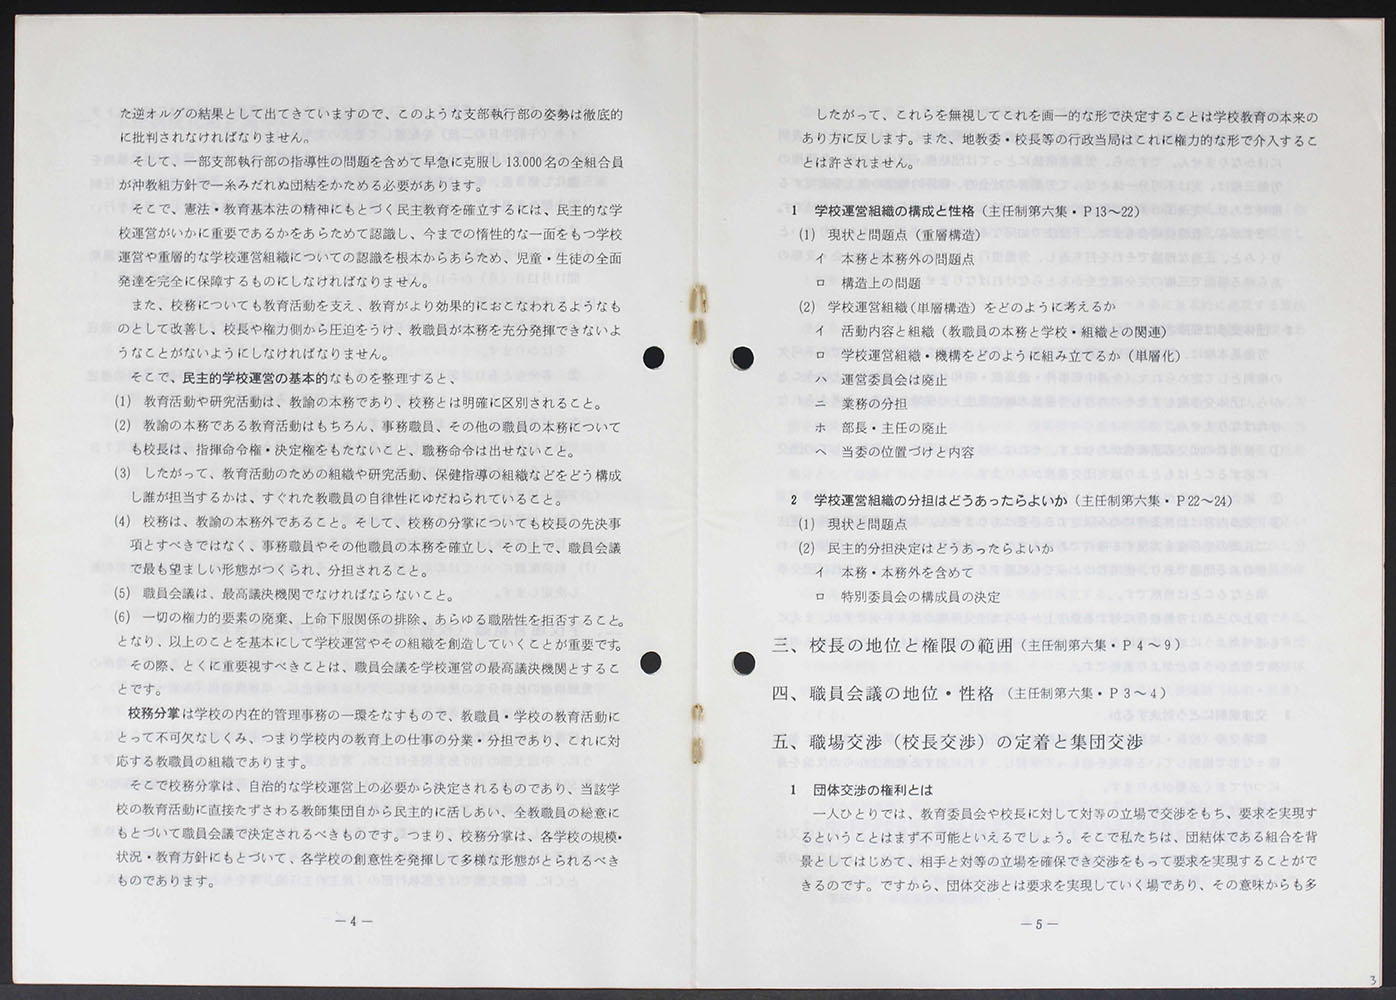 た逆オルグの結果として出てきていますので、このような支部執行部の姿勢は徹底的
に批判されなければなりません。
そして、一部支部執行部の指導性の問題を含めて早急に克服し13.000名の全組合員
が沖教組方針で一糸みだれぬ団結をかためる必要があります。
そこで、憲法・教育基本法の精神にもとづく民主教育を確立するには、民主的な学
校運営がいかに重要であるかをあらためて認識し、今までの惰性的な一面をもつ学校
運営や重層的な学校運営組織についての認識を根本からあらため、児童・生徒の全面
発達を完全に保障するものにしなければなりません。
また、校務についても教育活動を支え、教育がより効果的におこなわれるようなも
のとして改善し、校長や権力側から圧迫をうけ、教職員が本務を充分発揮できないよ
うなことがないようにしなければなりません。
そこで、民主的学校運営の基本的なものを整理すると、
(1) 教育活動や研究活動は、教諭の本務であり、校務とは明確に区別されること。
(2) 教諭の本務である教育活動はもちろん、事務職員、その他の職員の本務について
も校長は、指揮命令権・決定権をもたないこと、職務命令は出せないこと。
(3) したがって、教育活動のための組織や研究活動、保健指導の組織などをどう構成
し誰が担当するかは、すぐれた教職員の自律性にゆだねられていること。
(4) 校務は、教諭の本務外であること。そして、校務の分掌についても校長の先決事
項とすべきではなく、事務職員やその他職員の本務を確立し、その上で、職員会議
で最も望ましい形態がつくられ、分担されること。
(5) 職員会議は、最高議決機関でなければならないこと。
(6) 一切の権力的要素の廃棄、上命下服関係の排除、あらゆる職階性を拒否すること。
となり、以上のことを基本にして学校運営やその組織を創造していくことが重要です。
その際、とくに重要視すべきことは、職員会議を学校運営の最高議決機関とするこ
とです。
校務分掌は学校の内在的管理事務の一環をなすもので、教職員・学校の教育活動に
とって不可欠なしくみ、つまり学校内の教育上の仕事の分業・分担であり、これに対
応する教職員の組織であります。
そこで校務分掌は、自治的な学校運営上の必要から決定されるものであり、当該学
校の教育活動に直接たずさわる教師集団自から民主的に活しあい、全教職員の総意に
もとづいて職員会議で決定されるべきものです。つまり、校務分掌は、各学校の規模・
状況・教育方針にもとづいて、各学校の創意性を発揮して多様な形態がとられるべき
ものであります。
—4—
したがって、これらを無視してこれを画一的な形で決定することは学校教育の本来の
あり方に反します。また、地教委・校長等の行政当局はこれに権力的な形で介入するこ
とは許されません。
1 学校運営組織の構成と性格（主任制第六集・P13〜22）
(1) 現状と問題点（重層構造）
イ 本務と本務外の問題点
ロ 構造上の問題
(2) 学校運営組織（単層構造）をどのように考えるか
イ 活動内容と組織（教職員の本務と学校・組織との関連）
ロ 学校運営組織・機構をどのように組み立てるか（単層化）
ハ 運営委員会は廃止
ニ 業務の分担
ホ 部長・主任の廃止
ヘ 当委の位置づけと内容
2 学校運営組織の分担はどうあったらよいか（主任制第六集・P22〜24）
(1) 現状と問題点
(2) 民主的分担決定はどうあったらよいか
イ 本務・本務外を含めて
ロ 特別委員会の構成員の決定
三、校長の地位と権限の範囲（主任制第六集・P4〜9）
四、職員会議の地位・性格（主任制第六集・P3〜4）
五、職場交渉（校長交渉）の定着と集団交渉
1 団体交渉の権利とは
一人ひとりでは、教育委員会や校長に対して対等の立場で交渉をもち、要求を実現す
るということはまず不可能といえるでしょう。そこで私たちは、団結体である組合を背
景としてはじめて、相手と対等の立場を確保でき交渉をもって要求を実現することがで
きるのです。ですから、団体交渉とは要求を実現していく場であり、その意味からも多
—5—
3